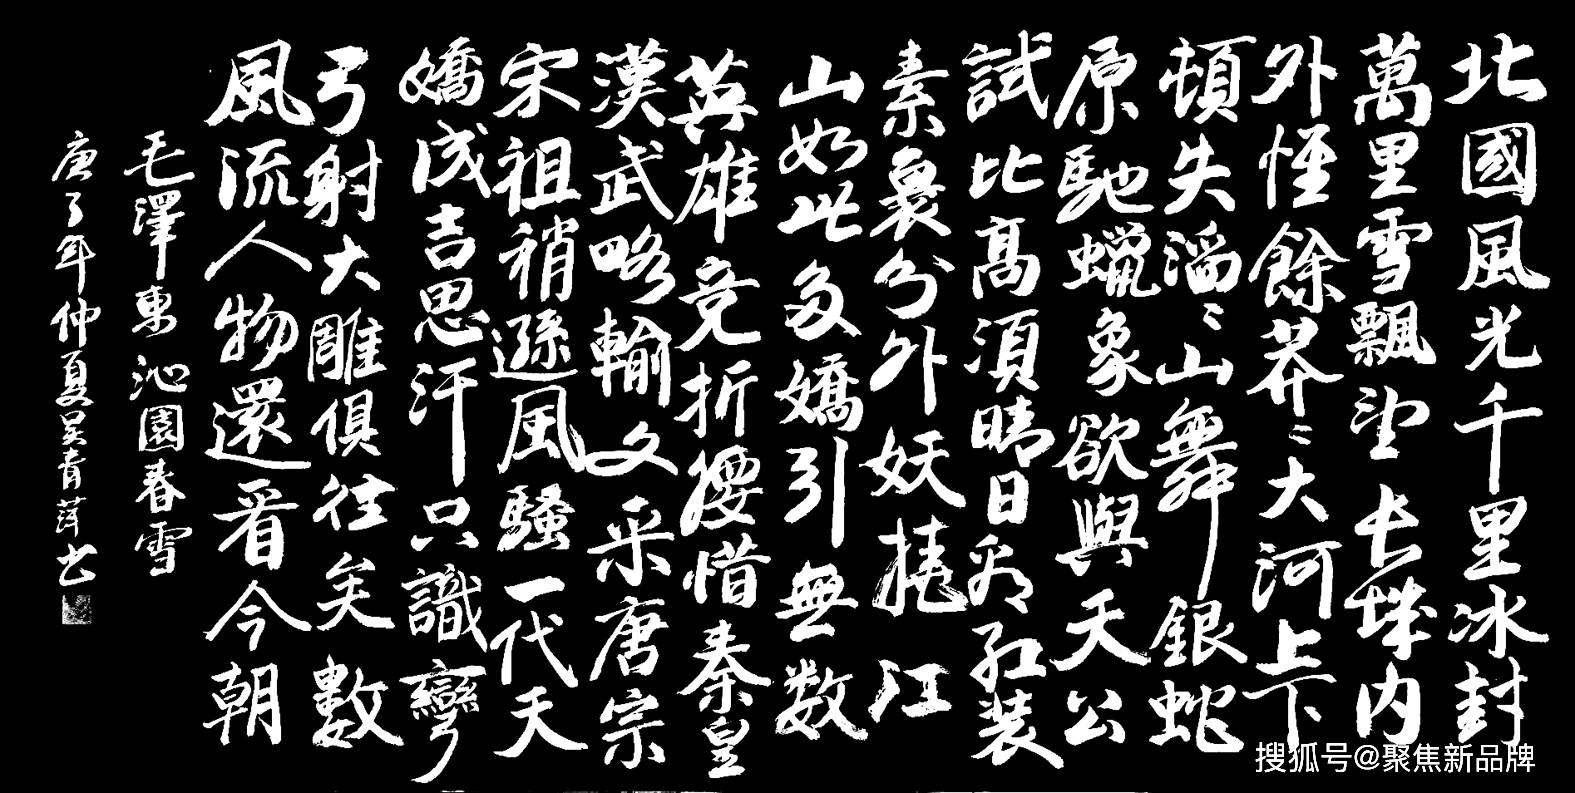 北國風光千里冰封
萬里雪飄望長城内
外惟餘莽〻大河上下
頓失滔〻山舞銀蛇
原馳蠟象欲與天公
試比髙須晴日看红装
素裹分外妖娆江
山如此多嬌引無数
英雄竞折腰惜秦皇
漢武略輸文采唐宗
宋祖稍遜風騷一代天
嬌成吉思汗只識彎
弓射大雕俱往矣數
風流人物還看今朝
毛澤東沁園春雪
庚子年仲夏吴青萍书
搜狐号@聚焦新品牌